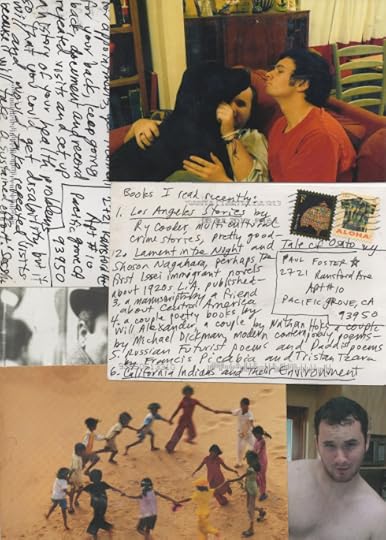 for your back, keep going
back, document and record
repeated visits and set up
a history of your med problems
so that you could get disability, but it
will and might take repeated visits
because will
2721 Ransford Ave
Apt #10
Pacific Grove, CA
93950
Books I read recently:
1. Los Angeles Stories by
Ry Cooder, multi cultural
crime stories, pretty good
2. Lament in the Night and
Tale of Osato by
Shoson Nagahara, perhaps the
first Issei immigrant novels
about 1920s L.A. published
3. a manuscript by a friend
about Central America
4. a couple poetry books by
Will Alexander, a couple by Nathan Hoks a couple
by Michael Dickman, modern contemporary poems
5. Russian Futurist poems and Dadaist poems
by Francis Picabia and Tristan Tzara
6. California Indians and Their Environment
ALOHA
PAUL FOSTER
2721 Ransford Ave
APT #10
PACIFIC GROVE, CA
93950